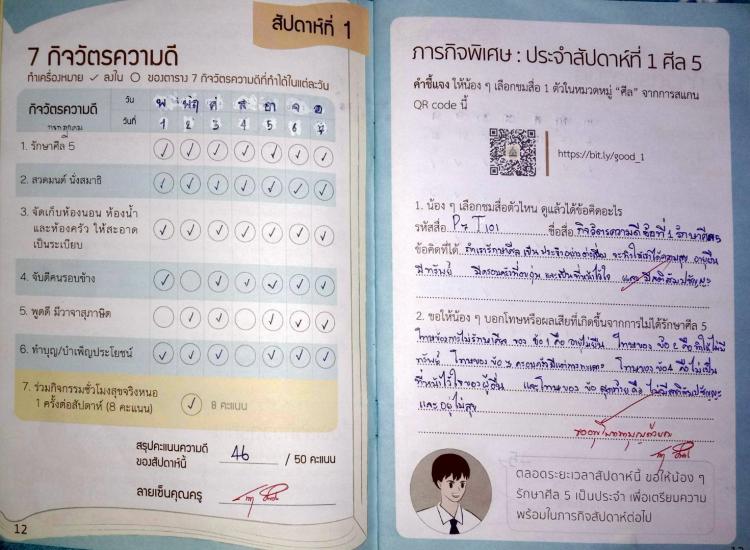 สัปดาห์ที่ 1
7 กิจวัตรความดี
ทำเครื่องหมาย ✓ ลงใน ○ ของตาราง 7 กิจวัตรความดีที่ทำได้ในแต่ละวัน
กิจวัตรความดี วัน พ พฤ ศ ส อา จ อ
วันที่ 1 2 3 4 5 6 7
1. รักษาศีล 5 ✓ ✓ ✓ ✓ ✓ ✓ ✓
2. สวดมนต์ นั่งสมาธิ ✓ ✓ ✓ ✓ ✓ ✓ ✓
3. จัดเก็บห้องนอน ห้องน้ำ
และห้องครัว ให้สะอาด
เป็นระเบียบ ✓ ✓ ✓ ✓ ✓ ✓ ✓
4. จับดีคนรอบข้าง
5. พูดดี มีวาจาสุภาษิต
6. ทำบุญ/บำเพ็ญประโยชน์
7. ร่วมกิจกรรมชั่วโมงสุขจริงหนอ
1 ครั้งต่อสัปดาห์ (8 คะแนน) ✓ 8 คะแนน
สรุปคะแนนความดี
ของสัปดาห์นี้ 46 / 50 คะแนน
ลายเซ็นคุณครู
12
ภารกิจพิเศษ : ประจำสัปดาห์ที่ 1 ศีล 5
คำชี้แจง ให้น้อง ๆ เลือกชมสื่อ 1 ตัวในหมวดหมู่ “ศีล” จากการสแกน
QR code นี้
https://bit.ly/good_1
1. น้อง ๆ เลือกชมสื่อตัวไหน ดูแล้วได้ข้อคิดอะไร
รหัสสื่อ P7 T101 ชื่อสื่อ กิจวัตรความดี ข้อที่ 1 รักษาศีล5
ข้อคิดที่ได้ ถ้าเรารักษาศีล เป็นประจำอย่างต่อเนื่อง จะทำให้เราได้ความสุข อายุยืน
มีทรัพย์ มีครอบครัวที่อบอุ่น และเป็นที่น่าไว้ใจ และ มีสติสัมปชัญญะ
2. ขอให้น้อง ๆ บอกโทษหรือผลเสียที่เกิดขึ้นจากการไม่ได้รักษาศีล 5
โทษของการไม่รักษาศีล ของ ข้อ 1 คือ อายุไม่ยืน โทษของ ข้อ 2 คือ ทำให้ไม่มี
ทรัพย์ โทษของ ข้อ 3 ครอบครัวมีแต่การทะเลาะ โทษของ ข้อ4 คือ ไม่เป็น
ที่น่าไว้ใจของผู้อื่น และโทษของ ข้อ สุดท้าย คือ ไม่มีสติสัมปชัญญะ
และ อยู่ไม่สุข
ตลอดระยะเวลาสัปดาห์นี้ ขอให้น้อง ๆ
รักษาศีล 5 เป็นประจำ เพื่อเตรียมความ
พร้อมในภารกิจสัปดาห์ต่อไป